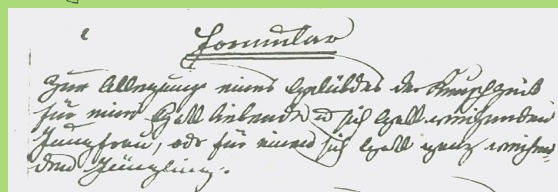 Formular
Zur Ablegung eines Gelübdes der Keuschheit
für eine Gott liebende u sich Gott weihenden
Jungfrau, od für einen sich Gott ganz weihen-
den Jüngling.